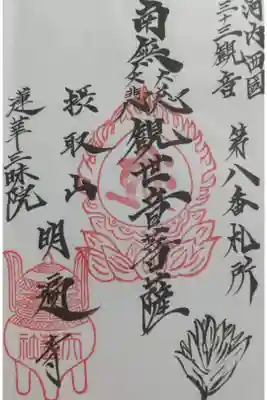 河内西國
三十三観音
第八番札所
南無大慈大悲観世音菩薩
摂取山 明遍寺
蓮華三昧院